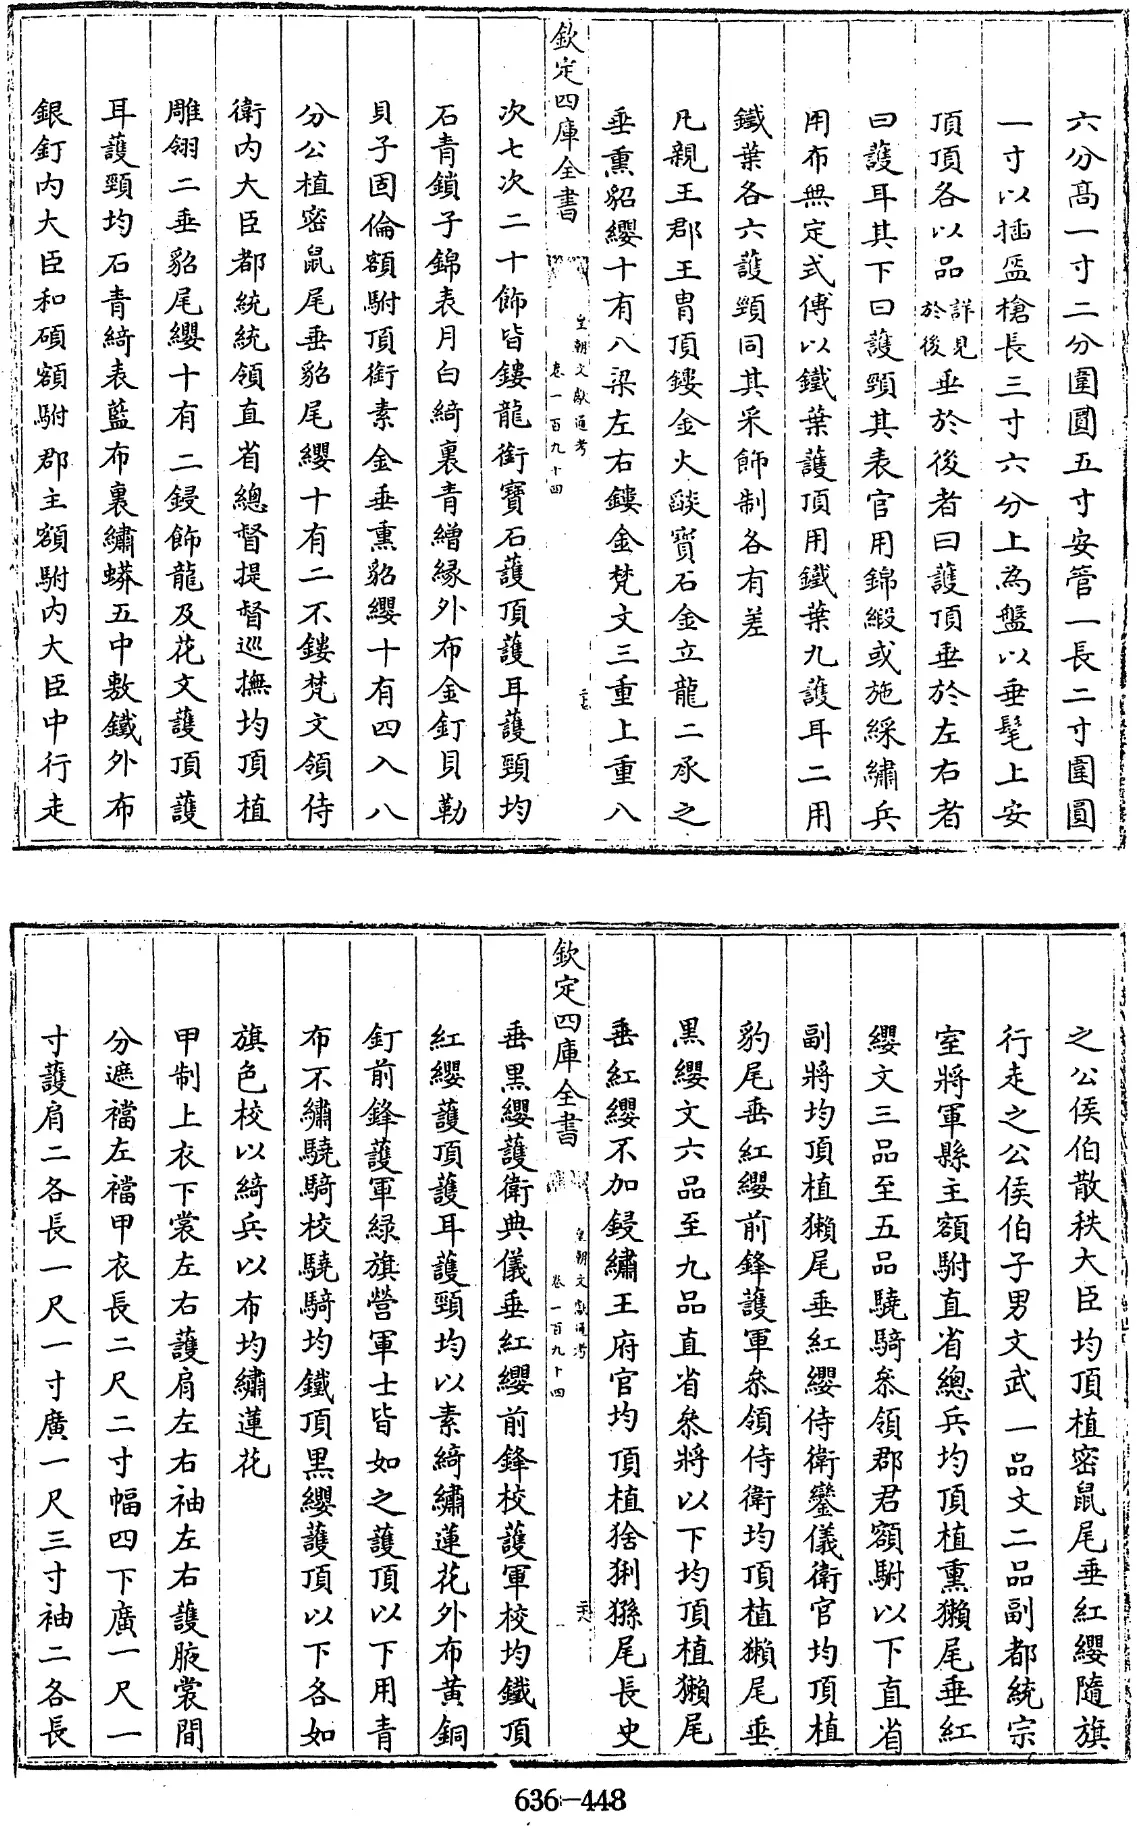 六分髙一寸二分圍圓五寸安管一長二寸圍圓
一寸以揷盔槍長三寸六分上為盤以垂髦上安
頂頂各以品詳見於後垂於後者曰䕶頂垂於左右者
曰䕶耳其下曰䕶頸其表官用錦緞或施綵繡兵
用布無定式傅以鐵葉䕶頂用鐵葉九䕶耳二用
鐵葉各六䕶頸同其采飾制各有差
凡親王郡王胄頂鏤金火燄寳石金立龍二承之
垂熏貂纓十有八梁左右鏤金梵文三重上重八
欽定四庫全書
皇朝文獻通考
卷一百九十四
次七次二十飾皆鏤龍銜寶石䕶頂䕶耳䕶頸均
石青鎖子錦表月白綺裏青繒縁外布金釘貝勒
貝子固倫額駙頂銜素金垂熏貂纓十有四入八
分公植密鼠尾垂貂尾纓十有二不鏤梵文領侍
衛内大臣都統統領直省總督提督巡撫均頂植
雕翎二垂貂尾纓十有二鋄飾龍及花文䕶頂䕶
耳䕶頸均石青綺表藍布裏繡蟒五中敷鐵外布
銀釘内大臣和碩額駙郡主額駙内大臣中行走
之公侯伯散秩大臣均頂植密鼠尾垂紅纓隨旗
行走之公侯伯子男文武一品文二品副都統宗
室將軍縣主額駙直省總兵均頂植熏獺尾垂紅
纓文三品至五品驍騎叅領郡君額駙以下直省
副將均頂植獺尾垂紅纓侍衛鑾儀衛官均頂植
豹尾垂紅纓前鋒䕶軍叅領侍衛均頂植獺尾垂
黒纓文六品至九品直省叅將以下均頂植獺尾
垂紅纓不加鋄繡王府官均頂植猞猁猻尾長史
欽定四庫全書
皇朝文獻通考
卷一百九十四
垂黒纓䕶衛典儀垂紅纓前鋒校䕶軍校均鐵頂
紅纓䕶頂䕶耳䕶頸均以素綺繡蓮花外布黄銅
釘前鋒䕶軍緑旗營軍士皆如之䕶頂以下用青
布不繡驍騎校驍騎均鐵頂黒纓䕶頂以下各如
旗色校以綺兵以布均繡蓮花
甲制上衣下裳左右䕶肩左右袖左右䕶腋裳間
分遮襠左襠甲衣長二尺二寸幅四下廣一尺一
寸䕶肩二各長一尺一寸廣一尺三寸袖二各長
636-448